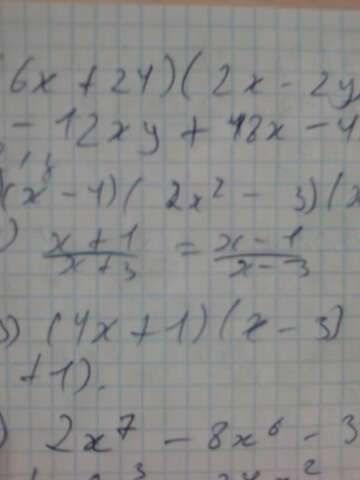 6x + 24)(2x - 2y
- 12xy + 48x - 4
)(x³ - 4)( 2x² - 3)(x
) (x + 1)/(x + 3) = (x - 1)/(x - 3)
) (4x + 1)(x - 3)
+1).
) 2x⁷ - 8x⁶ - 3